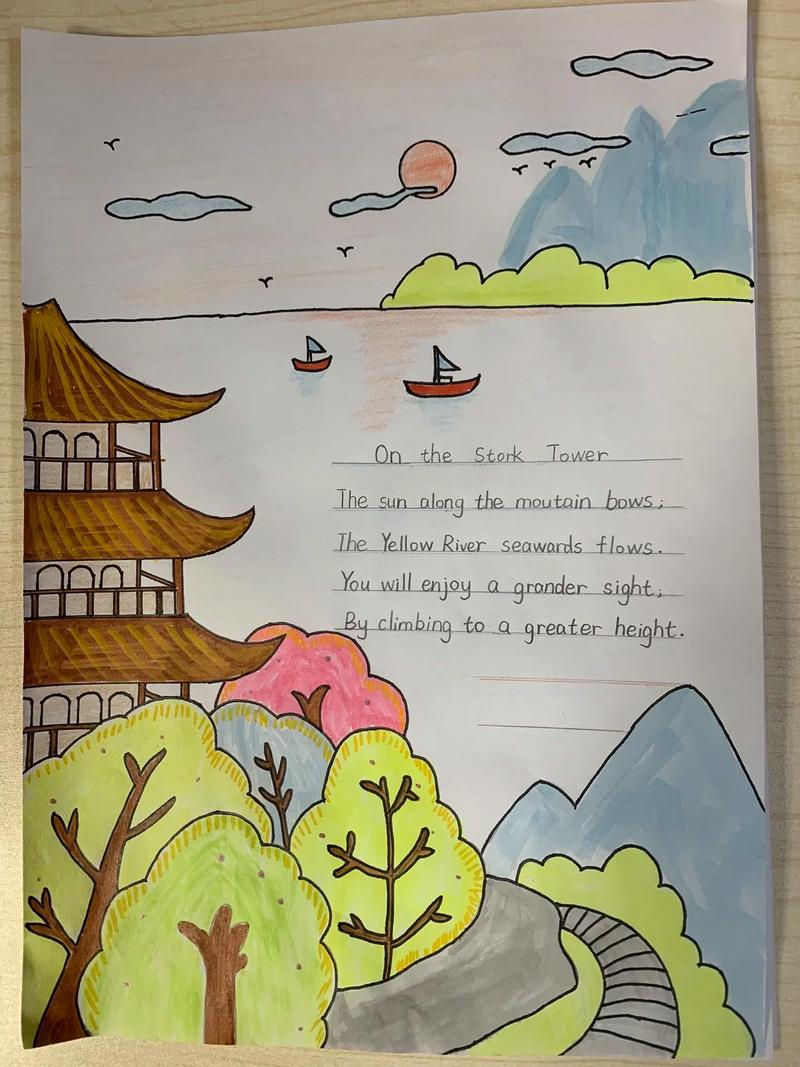 On the Stork Tower
The sun along the moutain bows;
The Yellow River seawards flows.
You will enjoy a grander sight;
By climbing to a greater height.